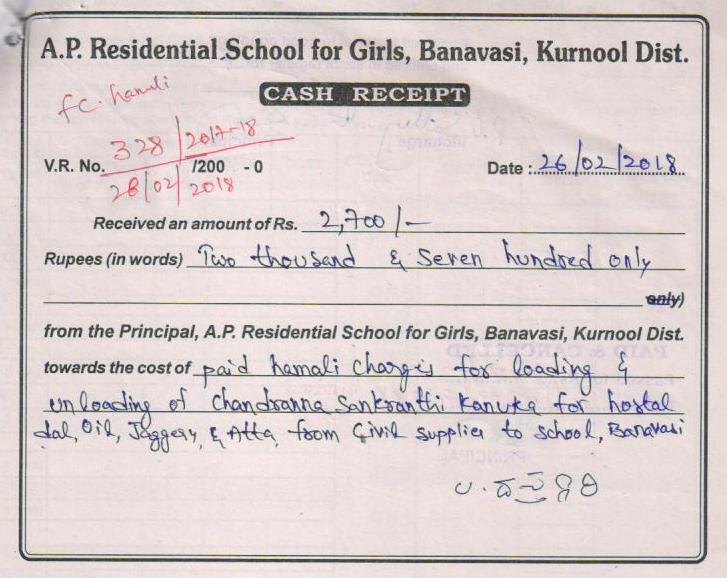 A.P. Residential School for Girls, Banavasi, Kurnool Dist.
CASH RECEIPT
fc. hamali
328/2017-18
V.R. No. /200 - 0
28/02/2018
Date : 26/02/2018
Received an amount of Rs. 2,700/-
Rupees (in words) Two thousand & Seven hundred only
only)
from the Principal, A.P. Residential School for Girls, Banavasi, Kurnool Dist.
towards the cost of paid hamali charges for loading &
unloading of Chandranna Sankranthi Kanuka for hostal
dal, Oil, Jaggery, & Atta, from Civil Supplies to School, Banavasi